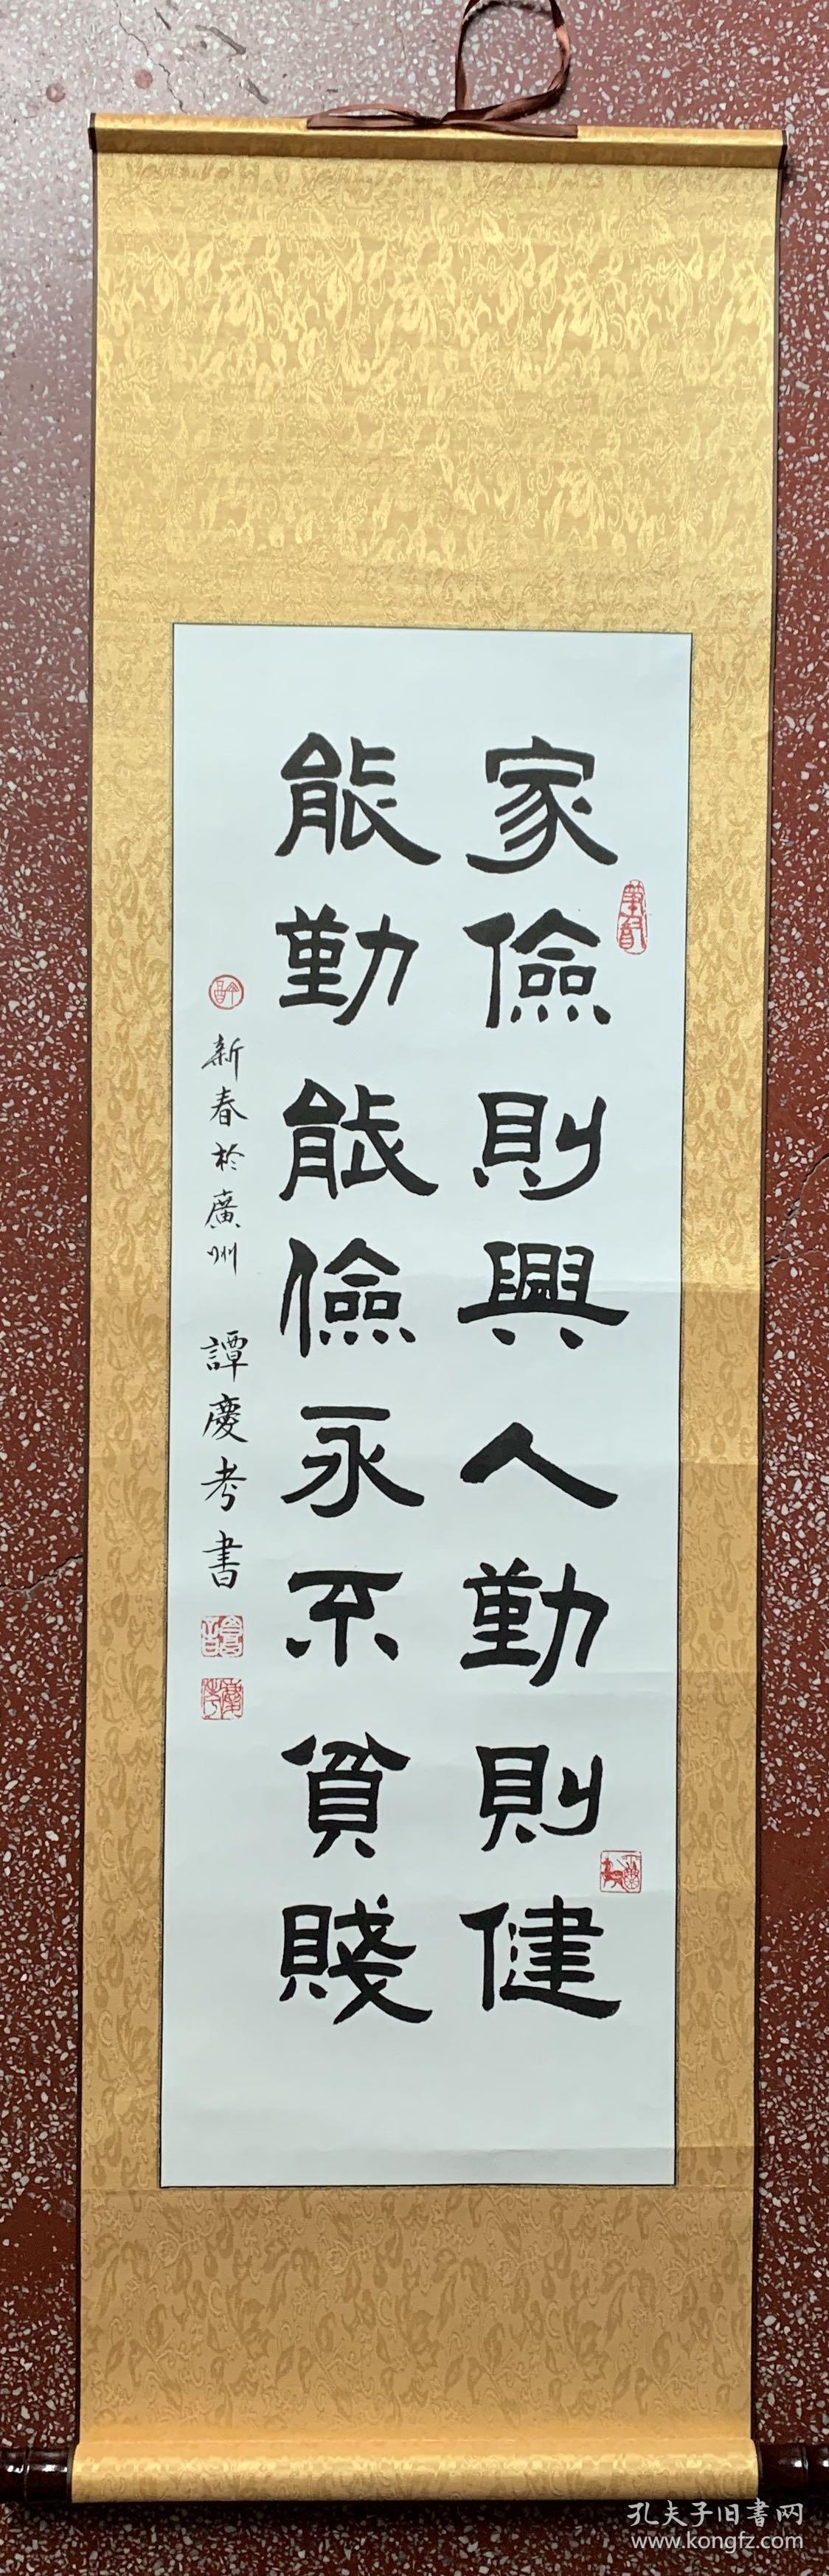 家儉則興人勤則健
能勤能儉永不貧賤
新春於廣州 譚慶考書
孔夫子旧書网
www.kongfz.com